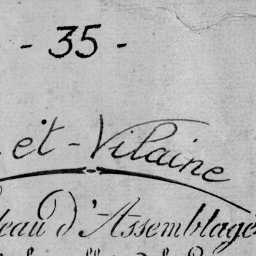 - 35 -
et-Vilaine
eau d'Assemblage